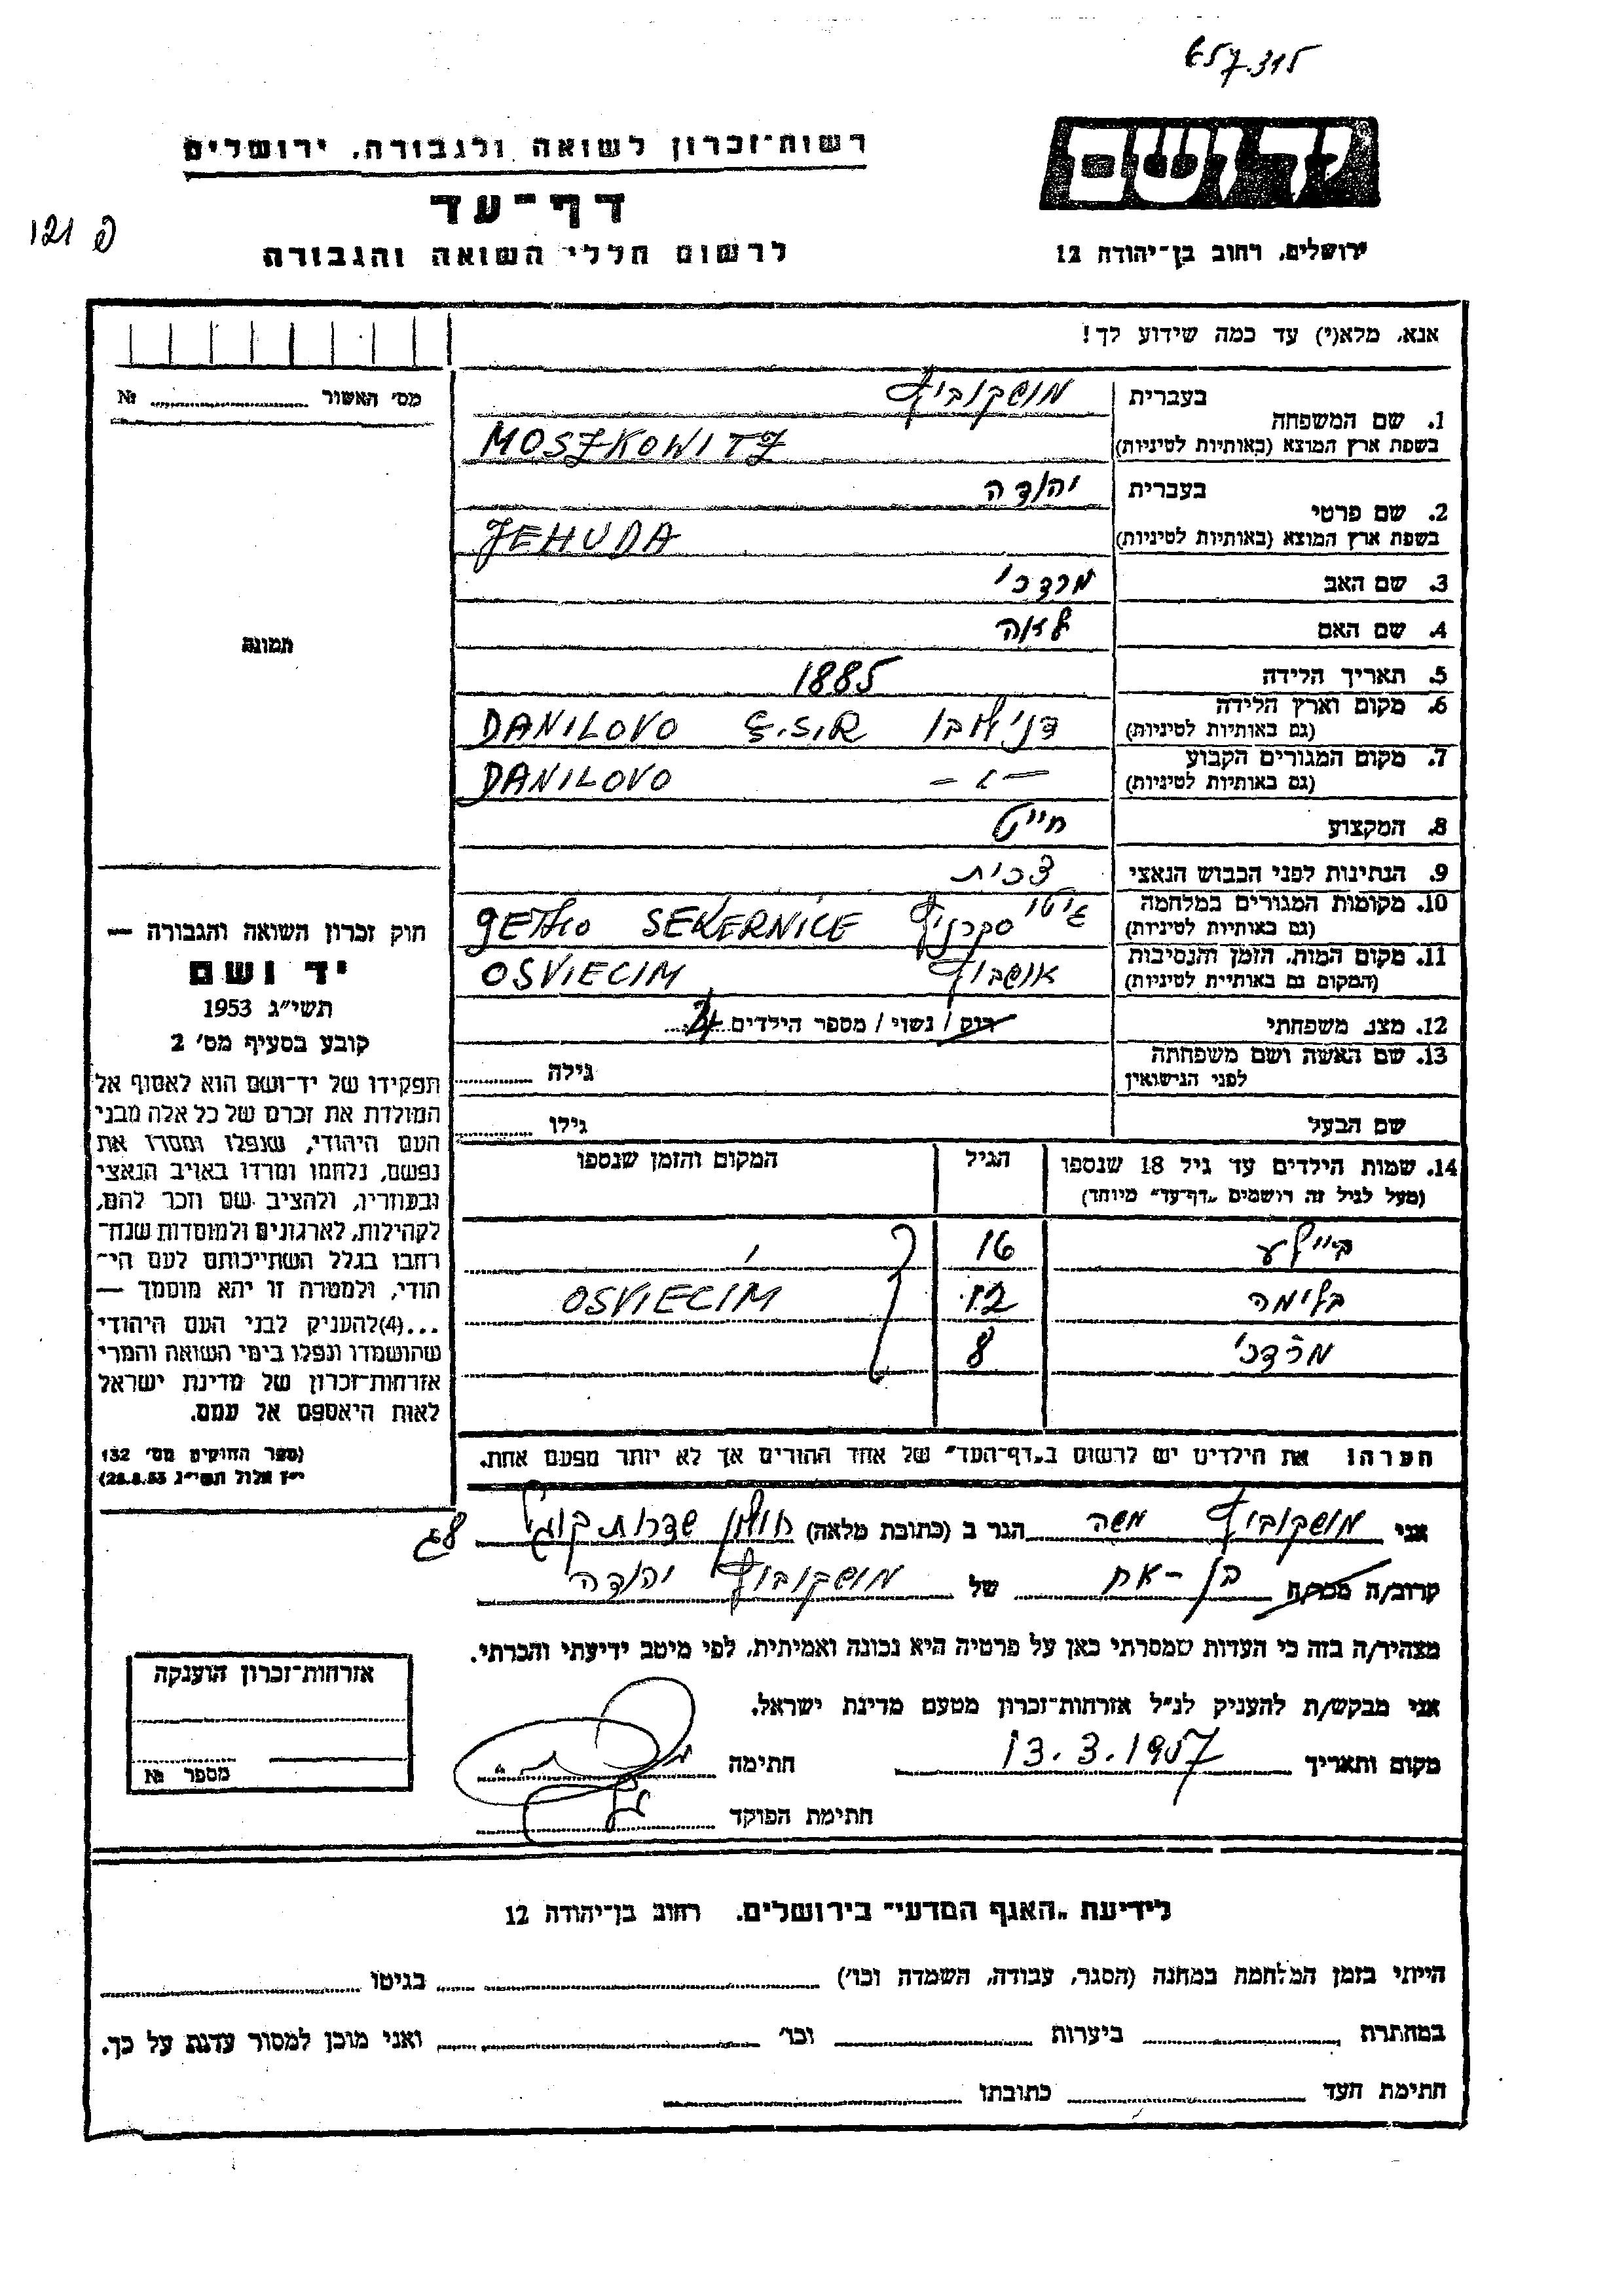 657.315
יד ושם
רשות־זכרון לשואה ולגבורה, ירושלים
דף־עד
פ 121
לרשום חללי השואה והגבורה
ירושלים, רחוב בן־יהודה 12
אנא, מלא(י) עד כמה שידוע לך!
מס׳ האשור № 
1. שם המשפחה
בעברית מושקוביץ
בשפת ארץ המוצא (באותיות לטיניות) MOSZKOWITZ
2. שם פרטי
בעברית יהודה
בשפת ארץ המוצא (באותיות לטיניות) JEHUDA
3. שם האב מרדכי
4. שם האם
תמונה
5. תאריך הלידה 1885
6. מקום וארץ הלידה דנילובו Č.S.R DANILOVO
(גם באותיות לטיניות)
7. מקום המגורים הקבוע -"- DANILOVO
(גם באותיות לטיניות)
8. המקצוע חייט
9. הנתינות לפני הכבוש הנאצי צכית
10. מקומות המגורים במלחמה גיטו סקרניץ GETHO SEKERNICE
(גם באותיות לטיניות)
11. מקום המות, הזמן והנסיבות אושביץ OSVIECIM
(המקום גם באותיית לטיניות)
12. מצב משפחתי רוק / נשוי / מספר הילדים
13. שם האשה ושם משפחתה גילה
לפני הנישואין
שם הבעל גילו
14. שמות הילדים עד גיל 18 שנספו הגיל המקום והזמן שנספו
(מעל לגיל זה רושמים „דף־עד” מיוחד)
ביילע 16
בלימה 12 OSVIECIM
מרדכי 8
הערה! את הילדים יש לרשום ב„דף־העד” של אחד ההורים אך לא יותר מפעם אחת.
חוק זכרון השואה והגבורה —
יד ושם
תשי״ג 1953
קובע בסעיף מס׳ 2
תפקידו של יד־ושם הוא לאסוף אל
המולדת את זכרם של כל אלה מבני
העם היהודי, שנפלו ומסרו את
נפשם, נלחמו ומרדו באויב הנאצי
ובעוזריו, ולהציב שם וזכר להם,
לקהילות, לארגונים ולמוסדות שנח־
רחבו בגלל השתייכותם לעם הי־
הודי, ולמטרה זו יהא מוסמך —
...(4)להעניק לבני העם היהודי
שהושמדו ונפלו בימי השואה והמרי
אזרחות־זכרון של מדינת ישראל
לאות היאספם אל עמם.
(ספר החוקים מס׳ 132
י״ז אלול תשי״ג 28.8.53)
אני מושקוביץ משה הגר ב (כתובת מלאה) חולון שדרות קוגל
קרוב/ה מכר/ה בן-אח של מושקוביץ יהודה
מצהיר/ה בזה כי העדות שמסרתי כאן על פרטיה היא נכונה ואמיתית, לפי מיטב ידיעתי והכרתי.
אני מבקש/ת להעניק לנ״ל אזרחות־זכרון מטעם מדינת ישראל.
מקום ותאריך 13.3.1957 חתימה
חתימת הפוקד
אזרחות־זכרון הוענקה
מספר №
לידיעת „האגף המדעי” בירושלים, רחוב בן־יהודה 12
הייתי בזמן המלחמה במחנה (הסגר, עבודה, השמדה וכו׳) בגיטו
במחתרת ביערות וכו׳ ואני מוכן למסור עדות על כך.
חתימת העד כתובתו